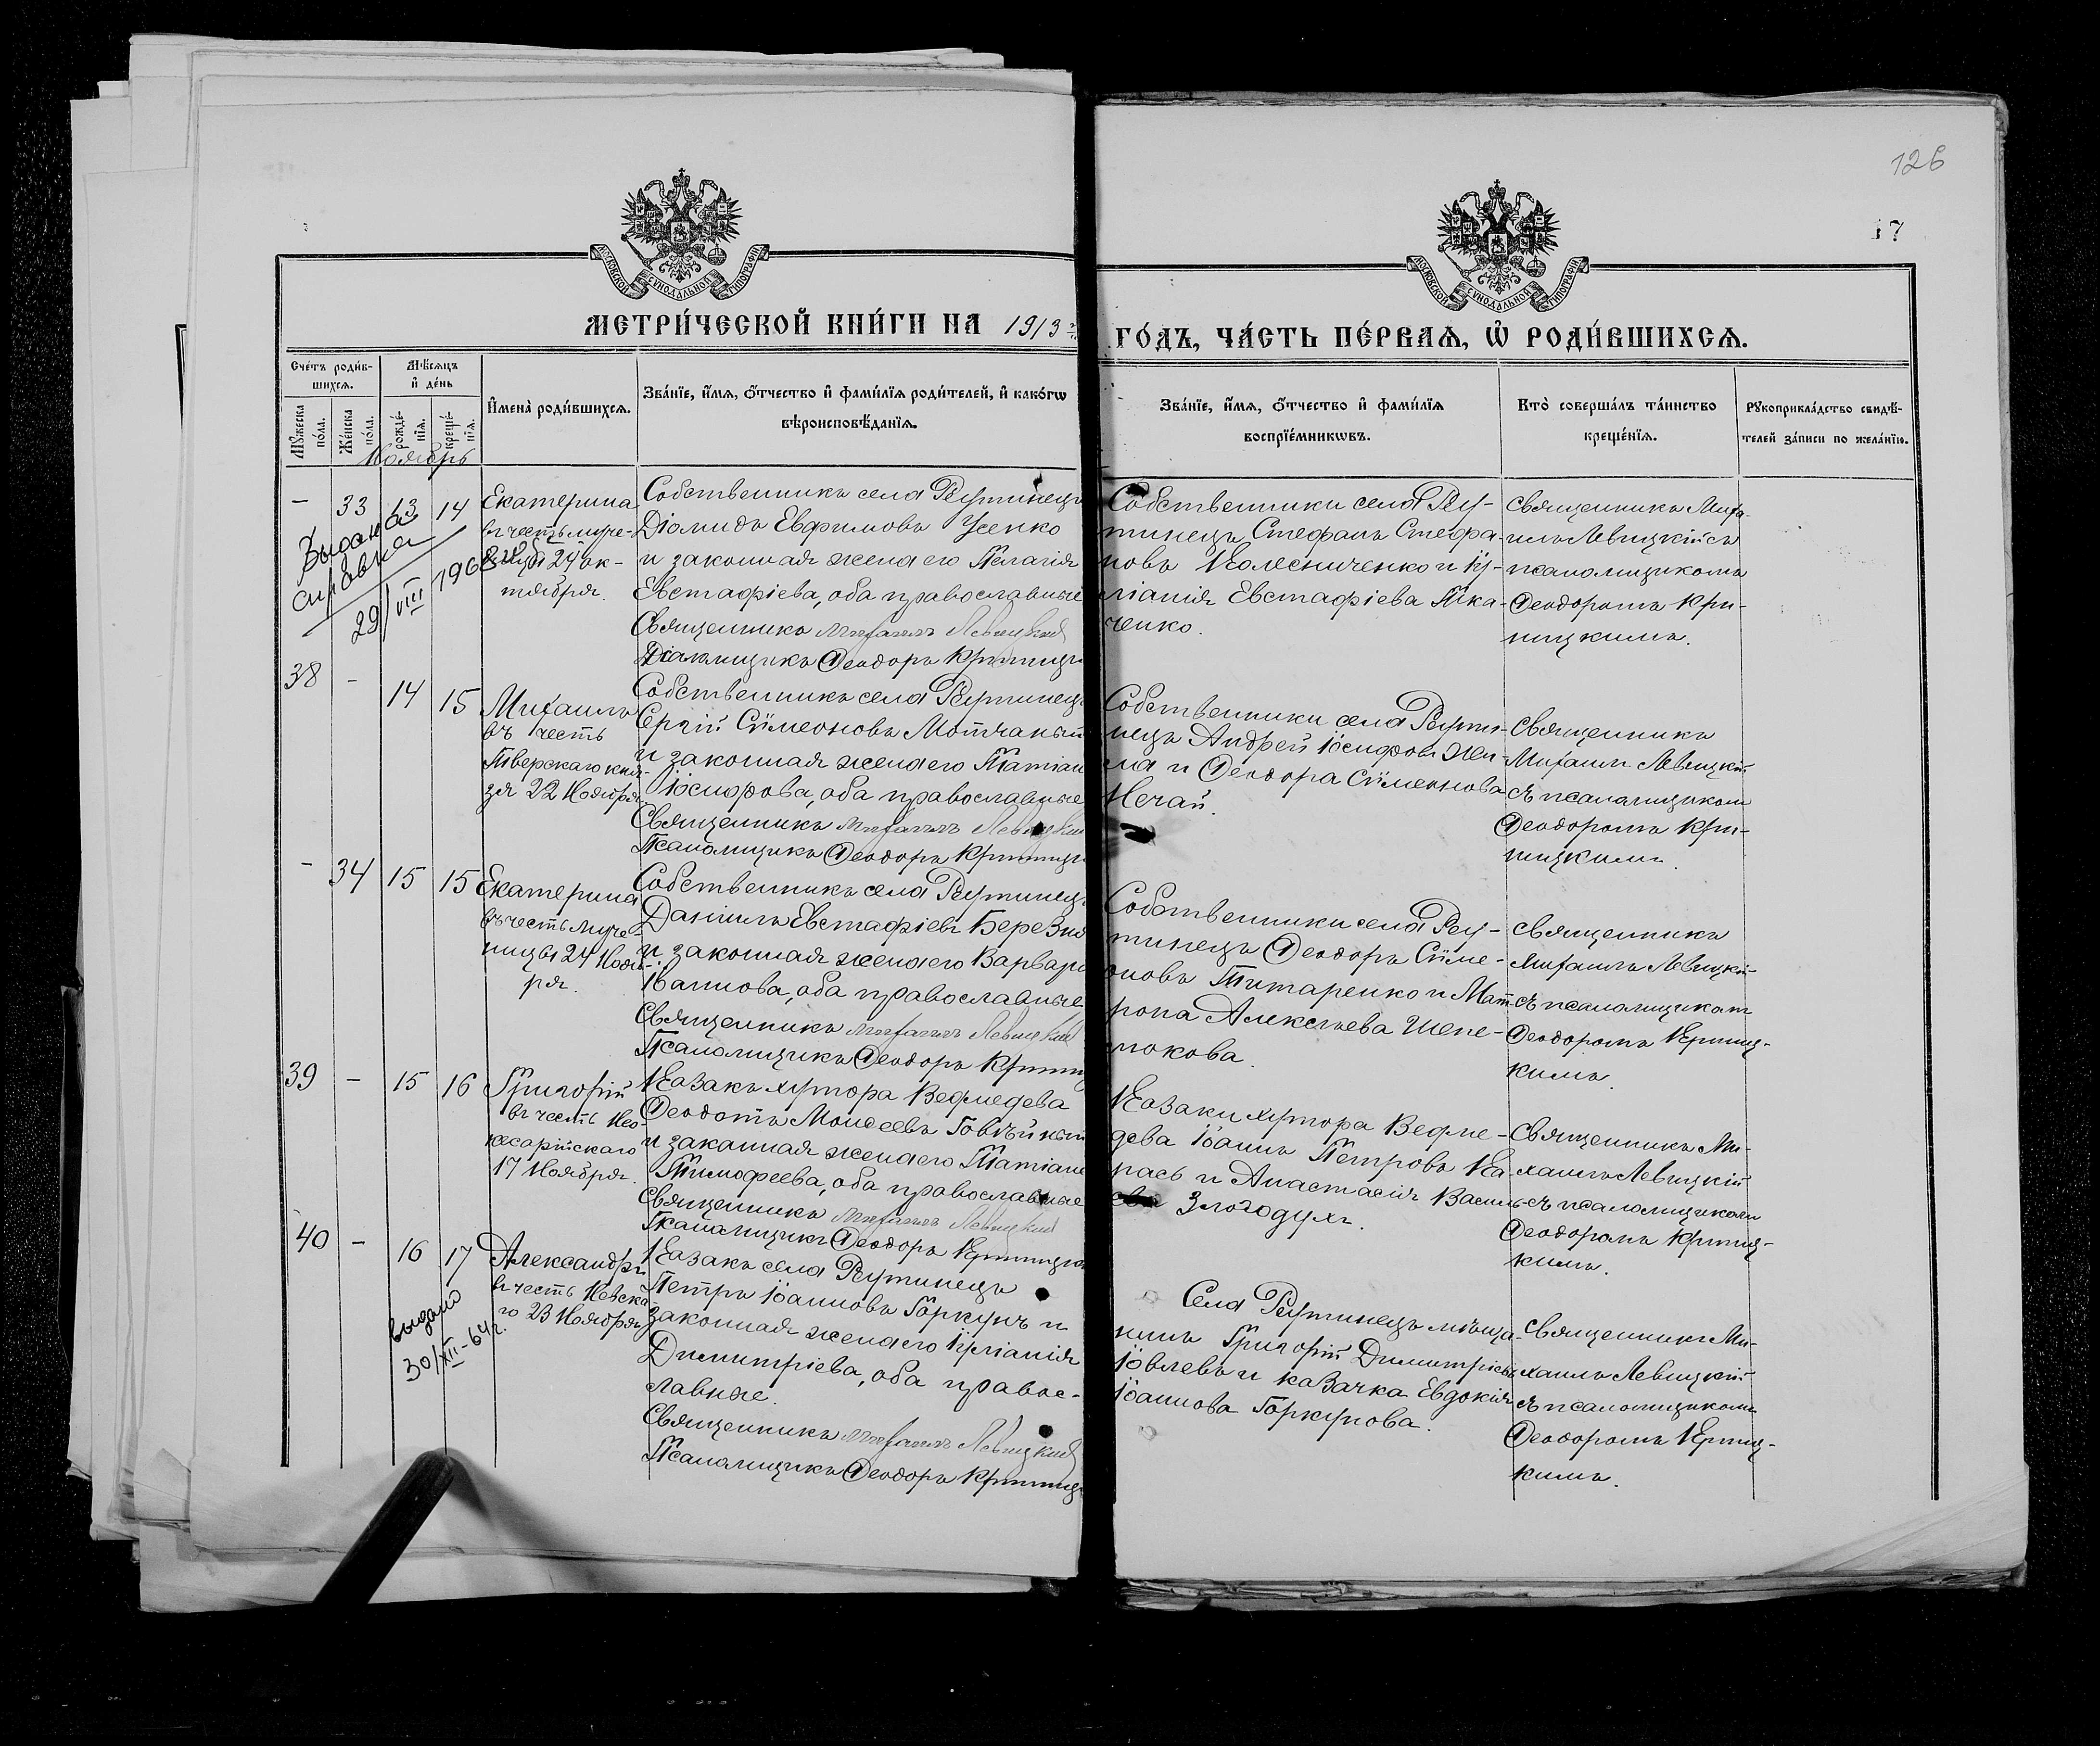 126
17
МОСКОВСКОЙ СѴНОДАЛЬНОЙ ТИПОГРАФІИ
МОСКОВСКОЙ СѴНОДАЛЬНОЙ ТИПОГРАФІИ
МЕТРИ́ЧЕСКОЙ КНИ́ГИ НА 1913 ГО́ДЪ, ЧА́СТЬ ПЕ́РВАѦ, Ѽ РОДИ́ВШИХСѦ.
Сче́тъ роди́в-
шихсѧ.
Мꙋ́жеска
по́ла.
Же́нска
по́ла.
Мѣ́сѧцъ
и҆ де́нь
рожде́-
нїѧ.
креще́-
нїѧ.
И҆мена̀ роди́вшихсѧ.
Зва́нїе, и҆́мѧ, ѻ҆́тчество и҆ фами́лїѧ роди́телей, и҆ како́гѡ
вѣроисповѣ́данїѧ.
Зва́нїе, и҆́мѧ, ѻ҆́тчество и҆ фами́лїѧ
воспрїе́мникѡвъ.
Кто̀ соверша́лъ та́инство
креще́нїѧ.
Рꙋкоприкла́дство свидѣ́-
телей за́писи по жела́нїю.
Ноябрь
– 33 13 14
Екатерина
въ честь муче-
ницы 24 ок-
тября.
Выдана
справка
29/VIII 1968
Собственникъ села Реутинецъ
Діомидъ Евфимовъ Усенко
и законная жена его Пелагія
Евстафіева, оба православные
Священникъ Михаилъ Левицкій
Псаломщикъ Ѳеодоръ Криницкі
Собственники села Реу-
тинецъ Стефанъ Стефа-
новъ Колесниченко и Іу-
ліанія Евстафіева Тка-
ченко.
Священникъ Миха-
илъ Левицкій съ
псаломщикомъ
Ѳеодоромъ Кри-
ницкимъ.
38 – 14 15
Михаилъ
въ честь
Тверскаго кня-
зя 22 Ноября
Собственникъ села Реутинецъ
Сергій Сѵмеоновъ
и законная жена его Татіан
Іосифова, оба православные
Священникъ Михаилъ Левицкій
Псаломщикъ Ѳеодоръ Криницкі
Собственники села Реути-
нецъ Андрей Іосифовъ
и Ѳеодора Сѵмеонова
Нечай.
Священникъ
Михаилъ Левицкій
съ псаломщиком
Ѳеодоромъ Кри-
ницкимъ.
– 34 15 15
Екатерина
въ честь муче-
ницы 24 Нояб-
ря.
Собственникъ села Реутинецъ
Даніилъ Евстафіевъ
и законная жена его Варвар
Іоаннова, оба православные
Священникъ Михаилъ Левицкій
Псаломщикъ Ѳеодоръ Криниц
Собственники села Реу-
тинецъ Ѳеодоръ Сѵме-
оновъ Титаренко и Мат-
рона Алексѣева Шепе-
люкова.
Священникъ
Михаилъ Левицкій
съ псаломщиком
Ѳеодоромъ Криниц-
кимъ.
39 – 15 16
Григорій
въ честь Нео-
кесарійскаго
17 Ноября.
Козакъ хутора Ведмедева
Ѳеодотъ Моисеевъ
и законная жена его Татіан
Тимофеева, оба православные
Священникъ Михаилъ Левицкій
Псаломщикъ Ѳеодоръ Криницкі
Козаки хутора Ведме-
дева Іоаннъ Петровъ Ка-
рась и Анастасія Василь-
ева Злогодухъ.
Священникъ Ми-
хаилъ Левицкій
съ псаломщиком
Ѳеодоромъ Криниц-
кимъ.
40 – 16 17
Александръ
въ честь Невска-
го 23 Ноября
выдано
30/XII-64г.
Козакъ села Реутинецъ
Петръ Іоанновъ Горкунъ и
законная жена его Іуліанія
Димитріева, оба правос-
лавные.
Священникъ Михаилъ Левицкій
Псаломщикъ Ѳеодоръ Криницк
Села Реутинецъ мѣща-
нинъ Григорій Димитріевъ
Іовлевъ и козачка Евдокія
Іоаннова Горкунова.
Священникъ Ми-
хаилъ Левицкій
съ псаломщикомъ
Ѳеодоромъ Криниц-
кимъ.